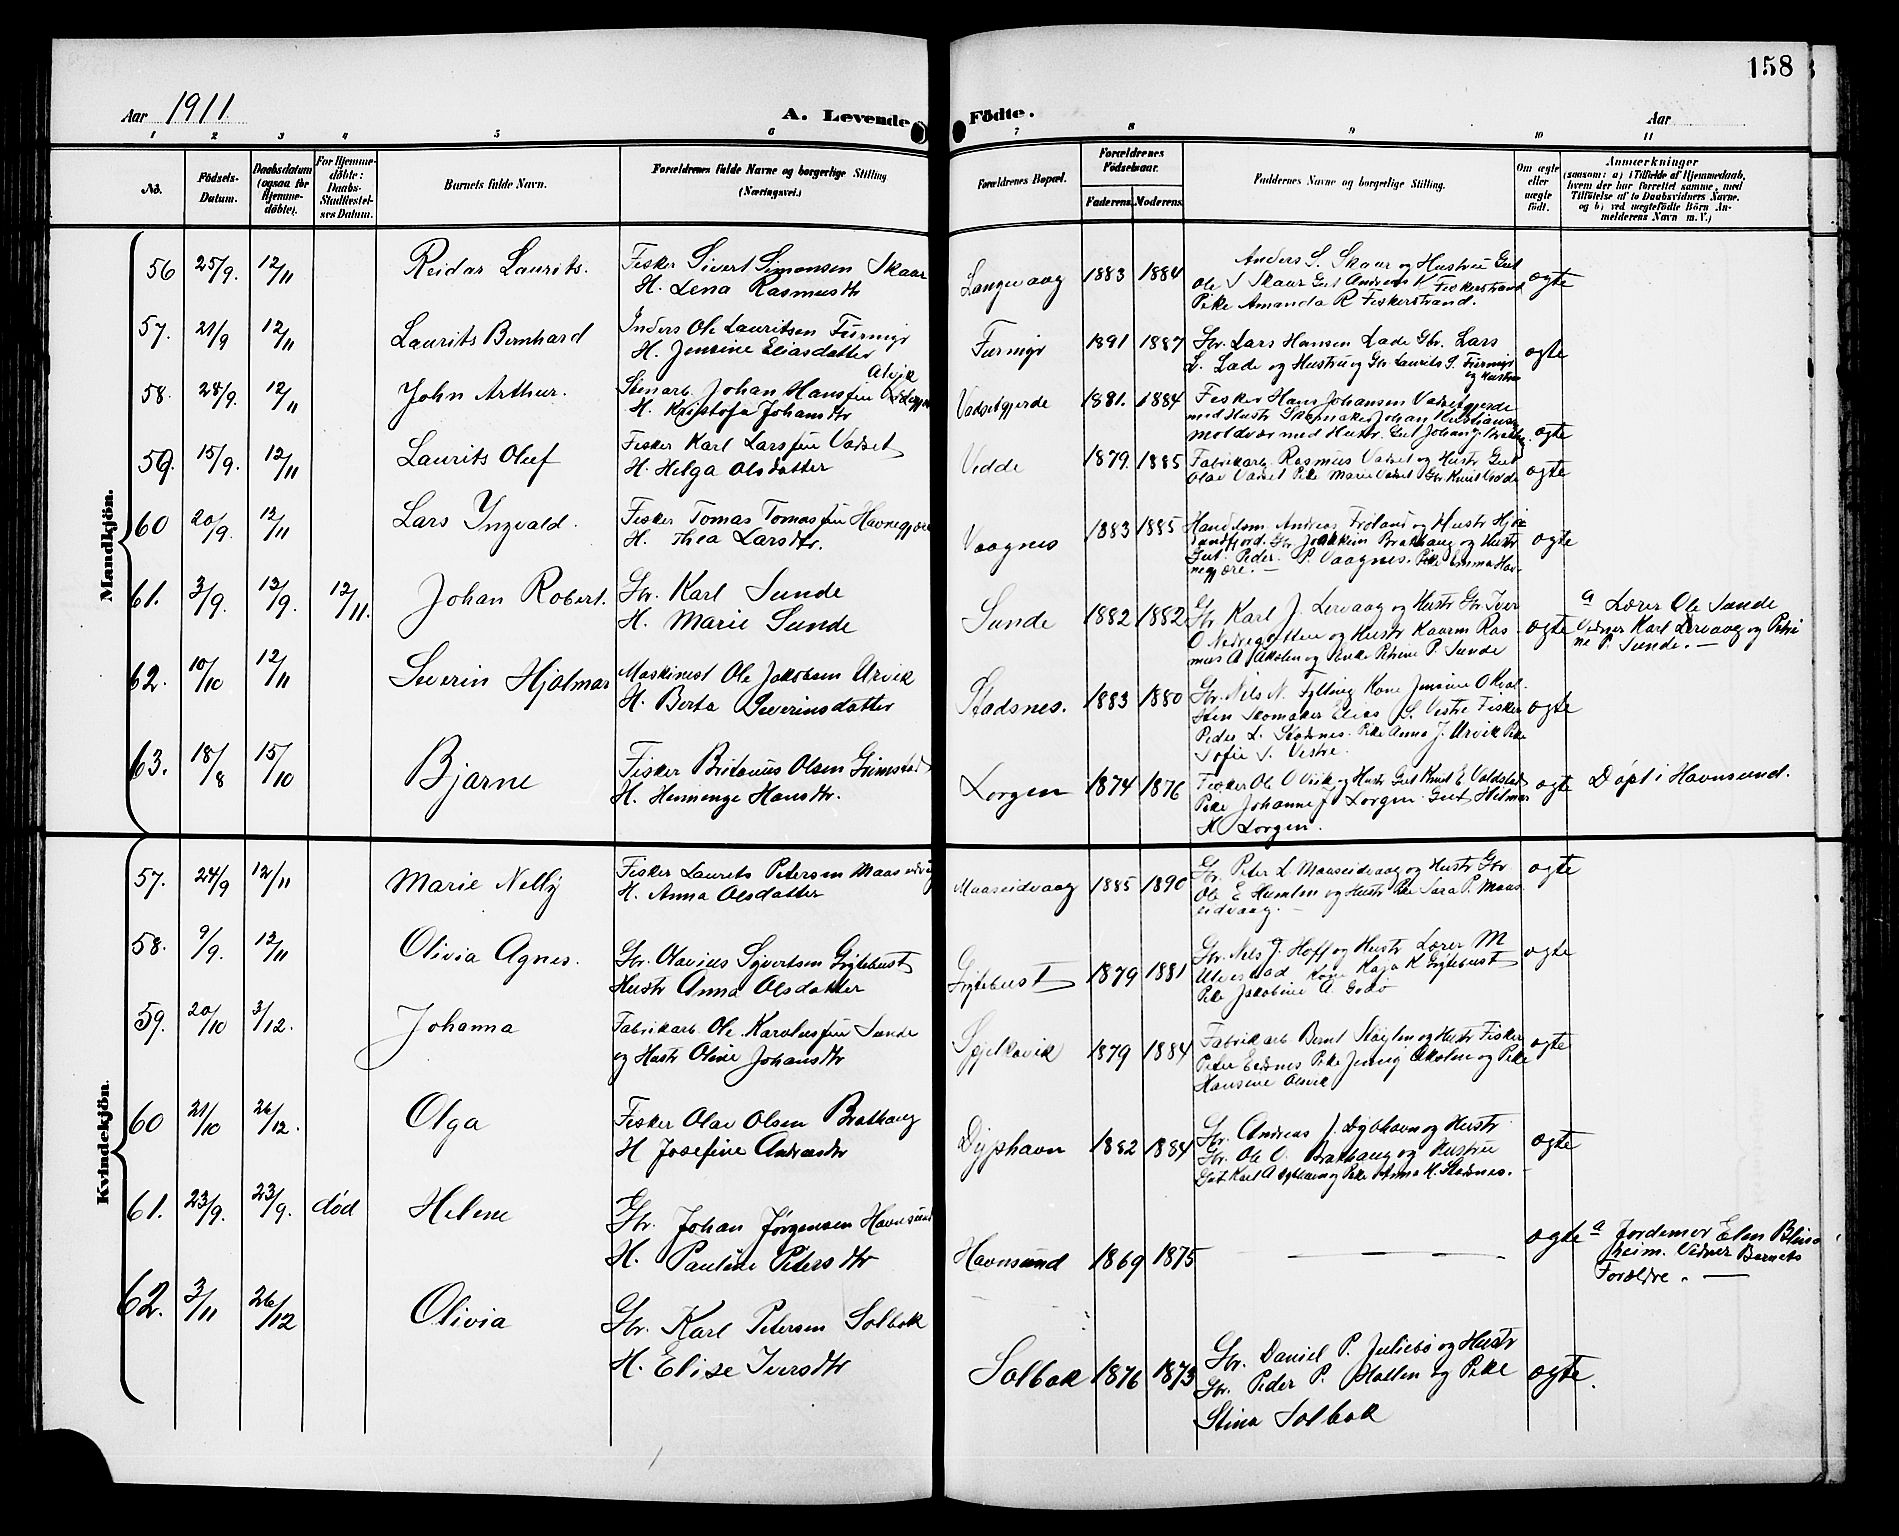 158
Aar 1911. A. Levende Födte. Aar
1 2 3 4 5 6 7 8 9 10 11
No. Födsels-Datum. Daabsdatum (ogsaa for Hjemme-döbte). For Hjemme-döbte: Daabs-Stadfæstel-ses Datum. Barnets fulde Navn. Forældrenes fulde Navne og borgerlige Stilling (Næringsvei.) Forældrenes Bopæl. Forældrenes Födselsaar. Faderens. Moderens. Faddernes Navne og borgerlige Stilling. Om ægte eller uægte födt. Anmærkninger
(saasom: a) i Tilfælde af Hjemmedaab, hvem der har forrettet samme, med Tilföielse af to Daabsvidners Navne, og b) ved uægtefödte Börn An-melderens Navn m. V.)
Mandkjön.
56 25/9. 12/11 Reidar Laurits. Fisker Sivert Simonsen Skaar
H. Lena Rasmusdtr
Langevaag 1883 1884 Anders S. Skaar og Hustru Gut
Ole S Skaar Gut Andreas K Fiskerstrand
Pike Amanda R Fiskerstrand. ægte
57. 21/9 12/11 Laurits Bernhard Inders Ole Lauritsen Furmyr
H. Jensine Eliasdatter
Furmyr 1891 1887 Gbr. Lars Hansen Lade Gbr. Lars
L. Lade og Hustru og Gbr Laurits S. Furmyr
og Hustru ægte
58. 28/9. 12/11 John Arthur. Stenarb. Johan Hanssen Alvik
H. Kristofa Johansdtr
Vadsetgjerde 1881. 1884 Fisker Hans Johansen Vadsetgjerde
med Hustr Skomaker Johan Kristiansen
Moldvær med Hustr. Gut Johan ægte
59. 15/9. 12/11 Laurits Oluf Fisker Karl Larssen Vadset
H. Helga Olsdatter
Vedde 1879. 1885 Fabrikarb Rasmus Vadset og Hustr Gut
Olav Vadset Pike Marie Vadset Gbr Knut Vedde ægte
60 20/9. 12/11 Lars Yngvald. Fisker Tomas Tomassen Havnegjære
H. Thea Larsdtr.
Vaagnes 1883 1885 Handelsm. Andreas Fröland og Hustr
Gbr Joakkim Brathaug og Hustr
Gut Peder. P. Vaagnes. Pike Emma Hav-
negjære. — ægte
61. 3/9. 12/9. 12/11. Johan Robert. Gbr. Karl Sunde
H. Marie Sunde
Sunde 1882 1882 Gbr Karl J. Lervaag og Hustr Gbr Iver
O Nedregotten og Hustr Kaarm Ras-
mus A Akslen og Pike Petrine P. Sunde ægte
a Lærer Ole Sunde
Vidner Karl Lervaag og Petri
ne P. Sunde. —
62. 10/10 12/11 Severin Hjalmar Maskinist Ole Jakobsen Urvik
H. Berta Severinsdatter
Stadsnes. 1883 1880 Gbr. Nils N. Fylling Kone Jensine O Kval-
sten Skomaker Elias S. Vestre Fisker
Peder L. Stadsnes. Pike Anna J. Urvik Pike
Sofie S. Vestre. ægte
63. 18/8 15/10 Bjarne Fisker Britanius Olsen Grimstad
H. Hemmenge Hansdtr.
Lorgen 1874 1876 Fisker Ole O Vik og Hustr Gut Knut E Valdstad
Pike Johanne J Lorgen Gut Hilmar
K Lorgen. ægte Döpt i Havnsund.
Kvindekjön.
57. 24/9 12/11 Marie Nelly Fisker Laurits Petersen Maaseidvåg
H. Anna Olsdatter
Maaseidvaag 1885 1890 Gbr. Peter L. Maaseidvaag og Hustr Gbr
Ole E Humlen og Hustr Pike Sara P. Maas-
eidvaag. — ægte
58. 9/9. 12/11 Olivia Agnes. Gbr. Olavius Syvertsen Grytebust
Hustr Anna Olsdatter
Grytebust 1879 1881 Gbr. Nels J. Hoff og Hustr Lærer M
Ulvestad Kone Kaja K Grytebust
Pike Jakobine A. Godö ægte
59. 20/10 3/12. Johanna Fabrikarb. Ole Karolussen Sunde
og Hustr Oline Johansdtr
Spjelkavik 1879 1884 Fabrikarb Bernt Stöylen og Hustr Fisker
Peter Eidsnes Pike Jenny Akslen og Pike
Hansine Olsvik ægte
60 21/10 26/12. Olga Fisker Olav Olsen Brathaug
H Josefine Andreasdtr
Dyphavn 1882 1884 Gbr. Andreas J. Dybhavn og Hustr
Gbr. Ole O. Brathaug og Hustru
Gut Karl A Dybhavn og Pike Anna K. Stadsnes. ægte
61. 23/9. 23/9. död Helene Gbr. Johan Jörgensen Havnsund
H. Pauline Petersdtr
Havnsund 1869 1875 — — — ægte a Jordemor Elen Blinds
heim. Vidner Barnets
Forældre. —
62. 3/11 26/12 Olivia Gbr. Karl Petersen Solbak
H. Elise Iversdtr
Solbak 1876 1873 Gbr. Daniel P. Juliebö og Hustr
Gbr. Peder P. Hollen og Pike
Stina Solbak ægte.